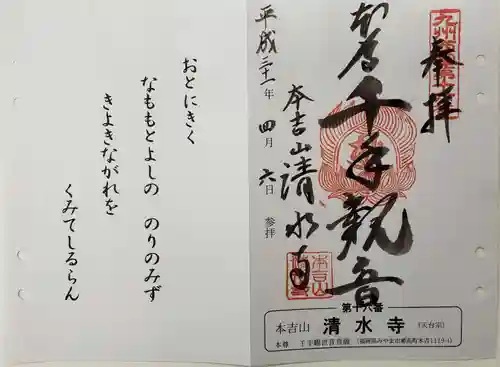 奉拝
本尊 千手観音
本吉山 清水寺
平成二十一年 四月 六日 参拝
第十六番
本吉山 清水寺 (天台宗)
本尊 千手観世音菩薩 (福岡県みやま市瀬高町本吉1119-1)
おとにきく
なももとよしの のりのみず
きよきながれを
くみてしるらん